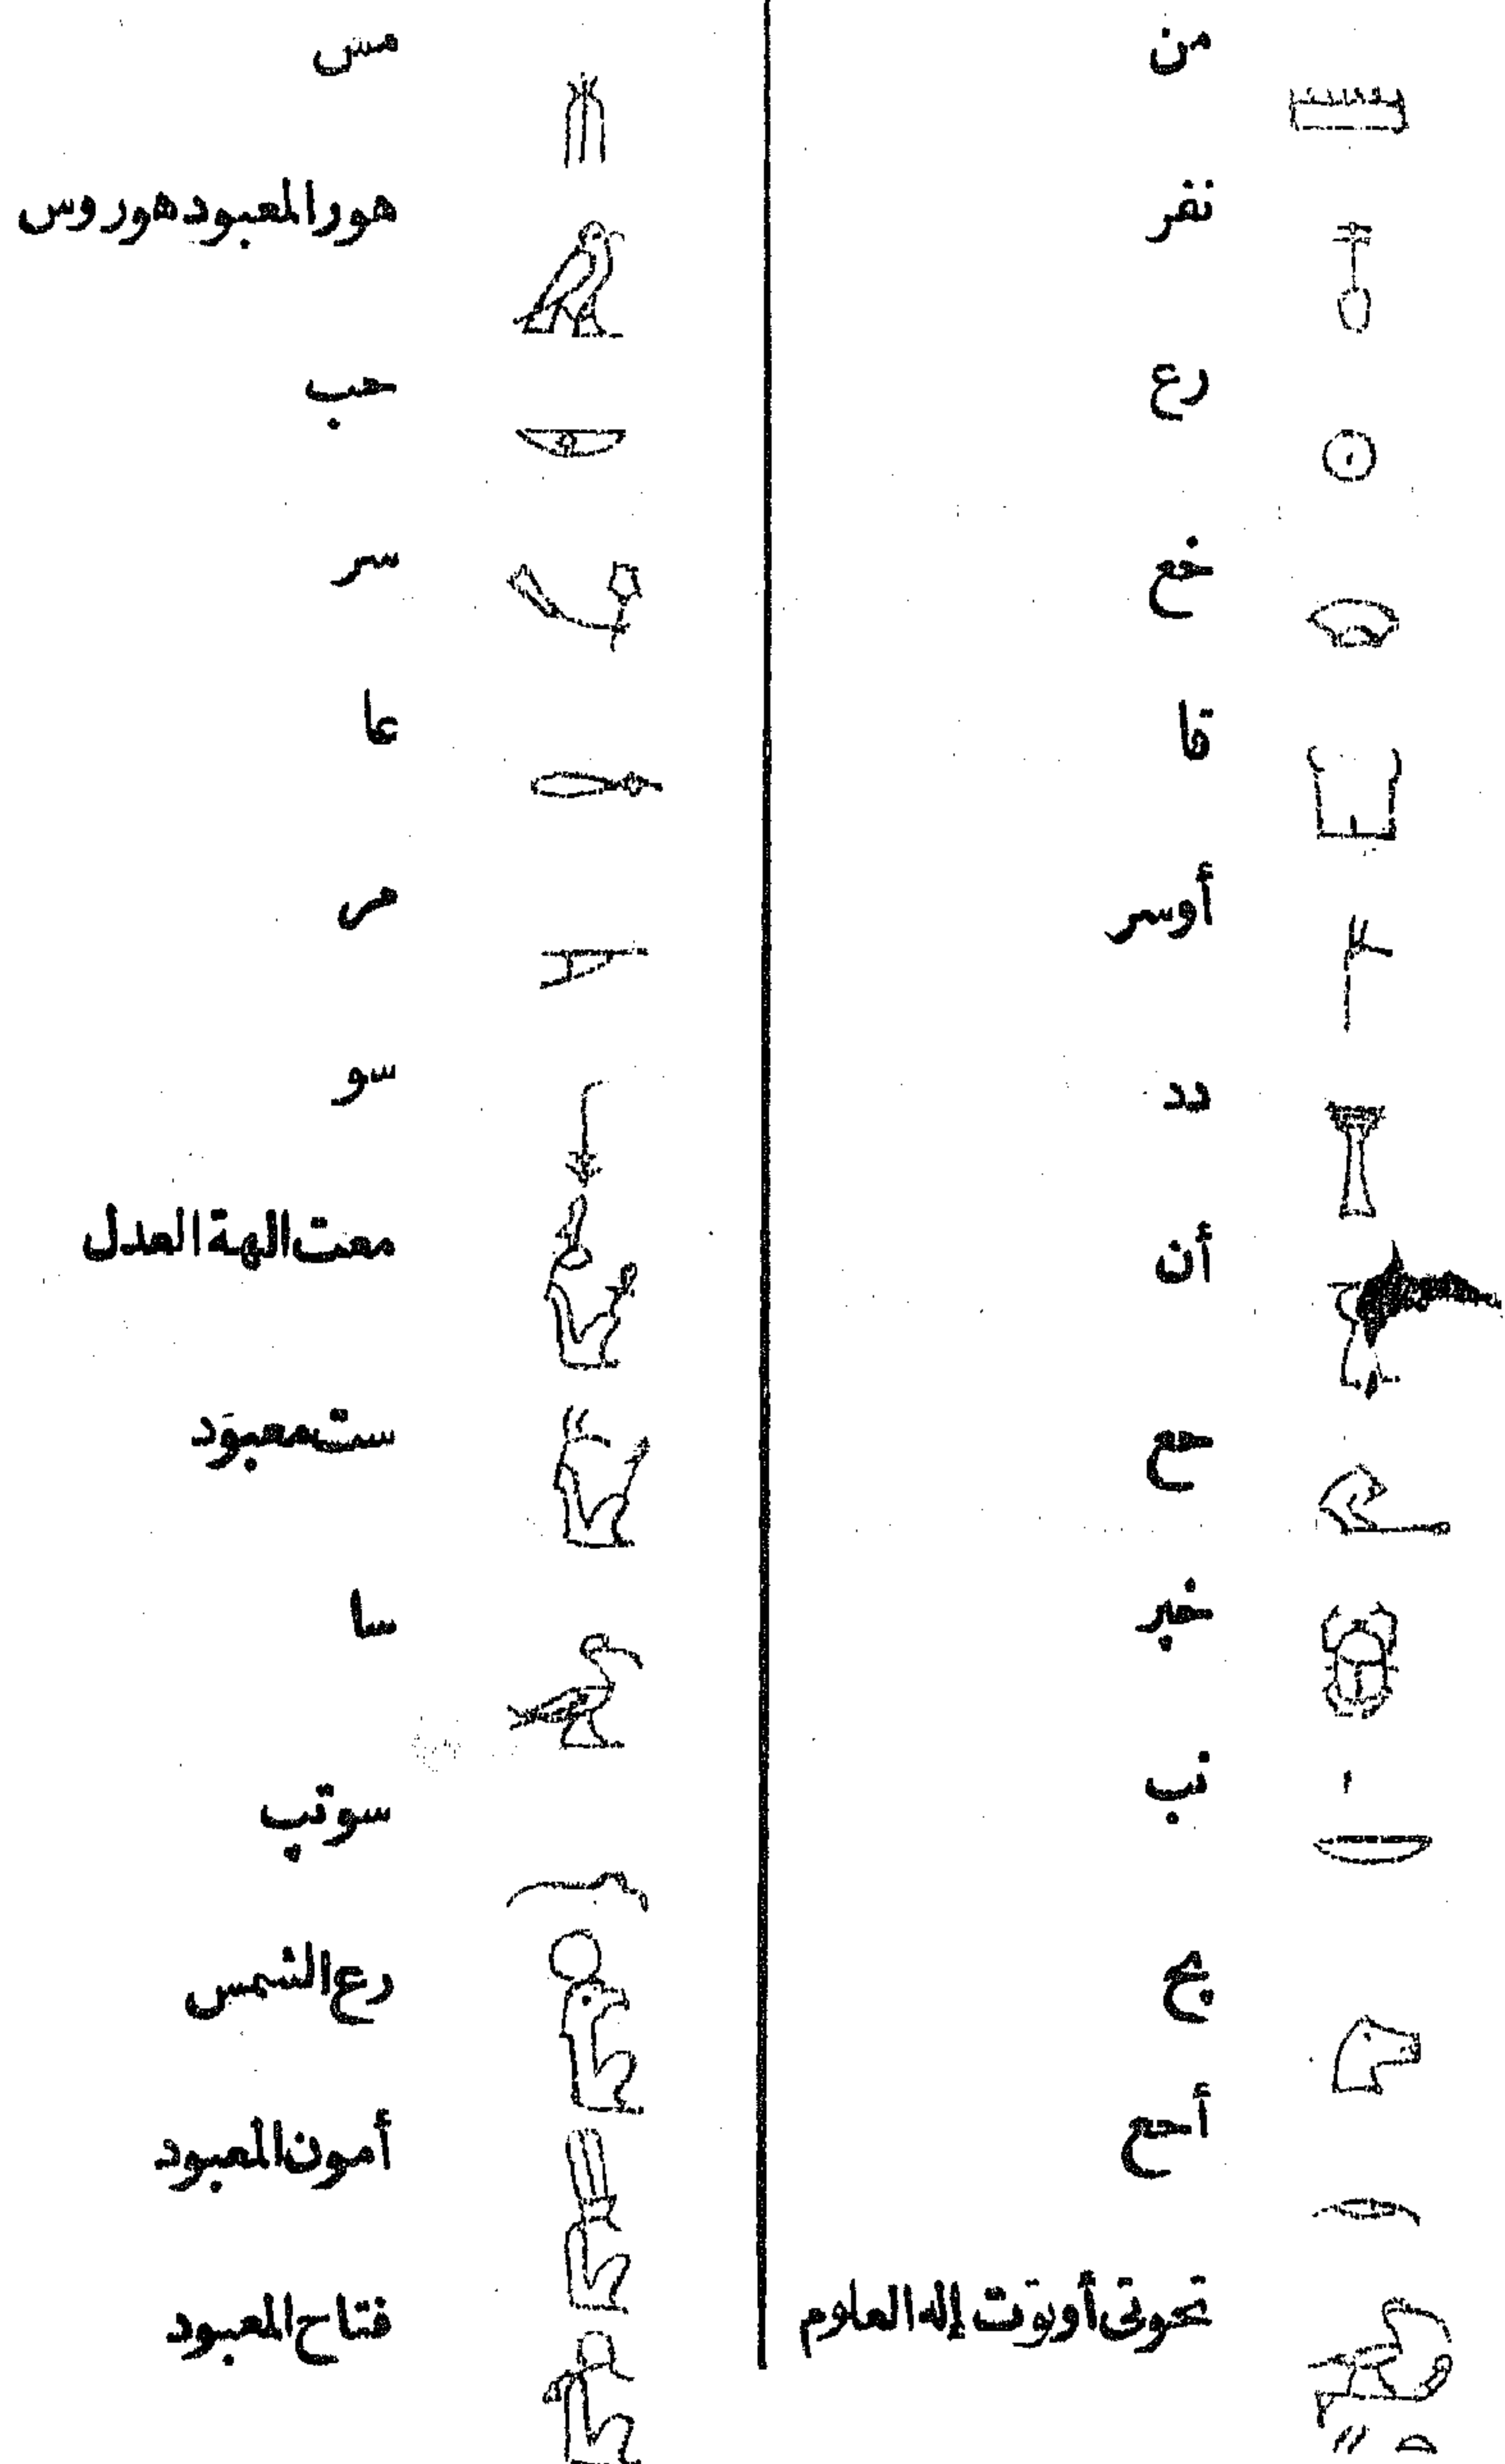 من
نفر
رع
خع
قا
أوسر
دد
أن
حع
خپر
نب
پح
أحع
تحوتى أو توت إله العلوم
مس
هور المعبود هوروس
حب
سر
عا
مر
سو
معت الهة العدل
ست معبود
سا
سوتپ
رع الشمس
أمون المعبود
فتاح المعبود